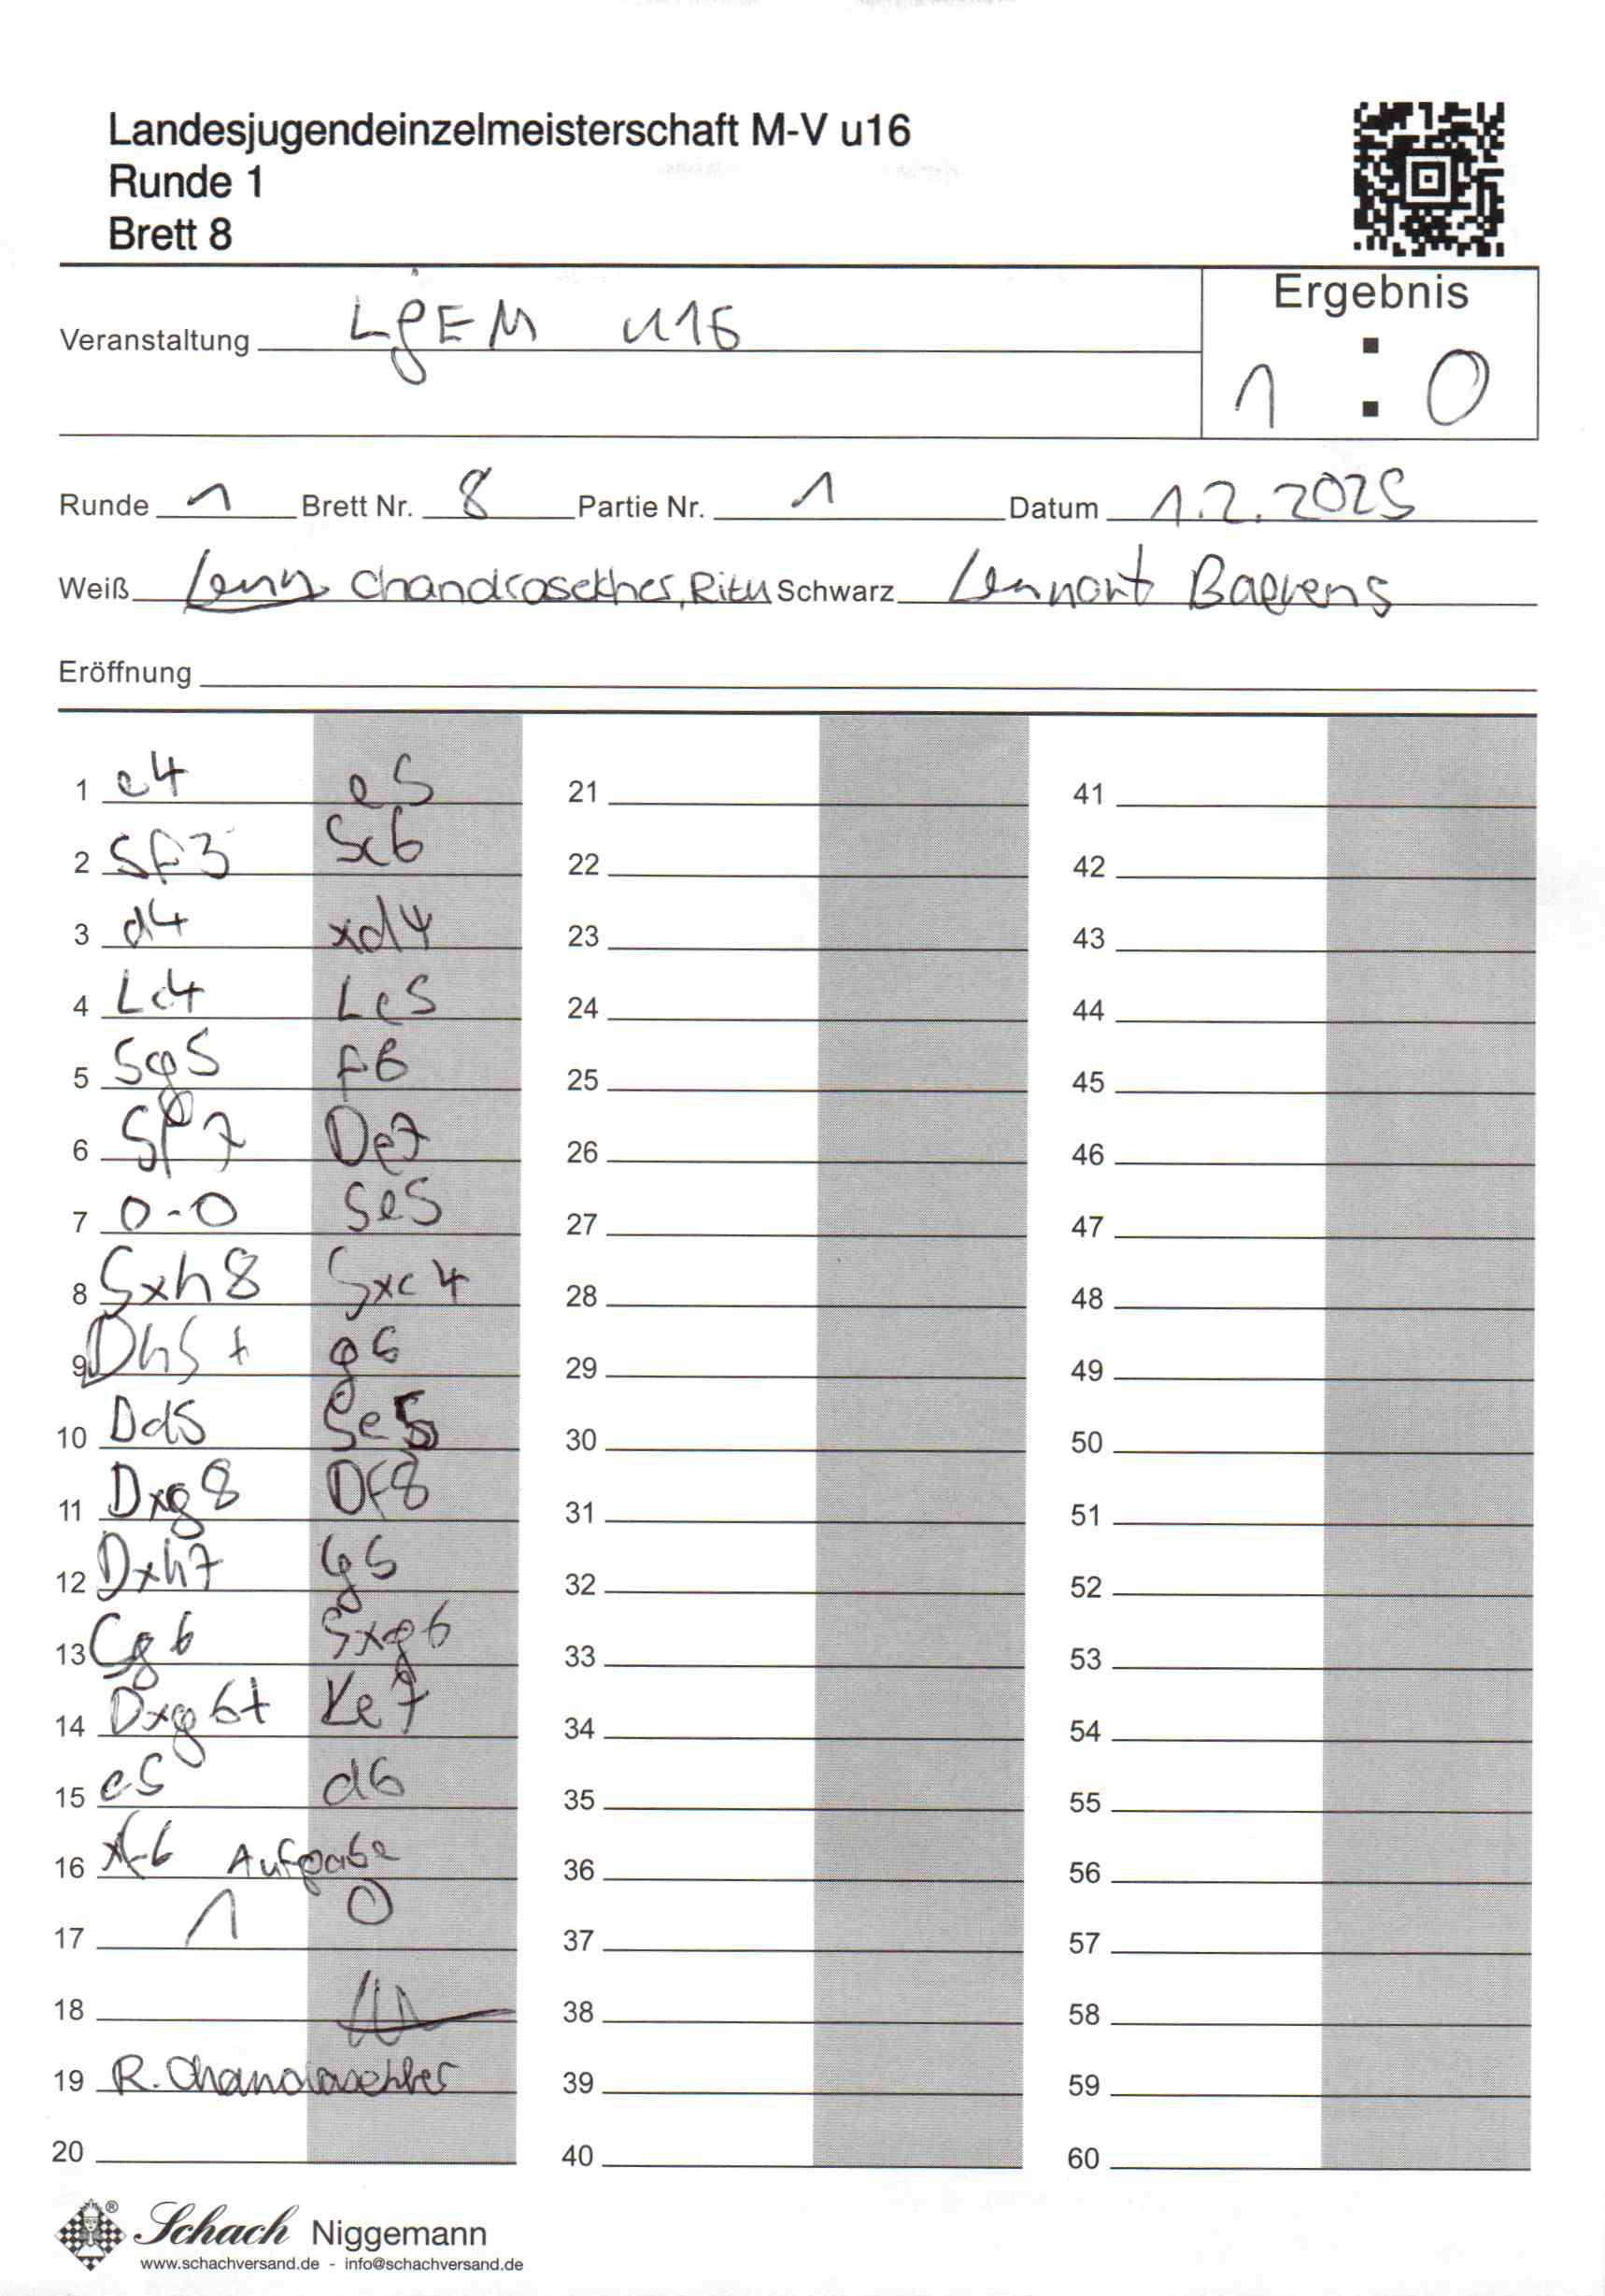 Landesjugendeinzelmeisterschaft M-V u16
Runde 1
Brett 8
Ergebnis
Veranstaltung LJEM u16
1 : 0
Runde 1 Brett Nr. 8 Partie Nr. 1 Datum 1.2.2025
Weiß Chandrasekher, Ritu Schwarz Lennart Baerens
Eröffnung
1 e4 e5 21 41
2 Sf3 Sc6 22 42
3 d4 xd4 23 43
4 Lc4 Lc5 24 44
5 Sg5 f6 25 45
6 Sf7 De7 26 46
7 0-0 Se5 27 47
8 Sxh8 Sxc4 28 48
9 Dh5+ g6 29 49
10 Dd5 Se5 30 50
11 Dxg8 Df8 31 51
12 Dxh7 g5 32 52
13 Sg6 Sxg6 33 53
14 Dxg6+ Ke7 34 54
15 e5 d6 35 55
16 xf6 Aufgabe 36 56
17 1 0 37 57
18 38 58
19 R. Chandrasekher 39 59
20 40 60
Schach Niggemann
www.schachversand.de - info@schachversand.de